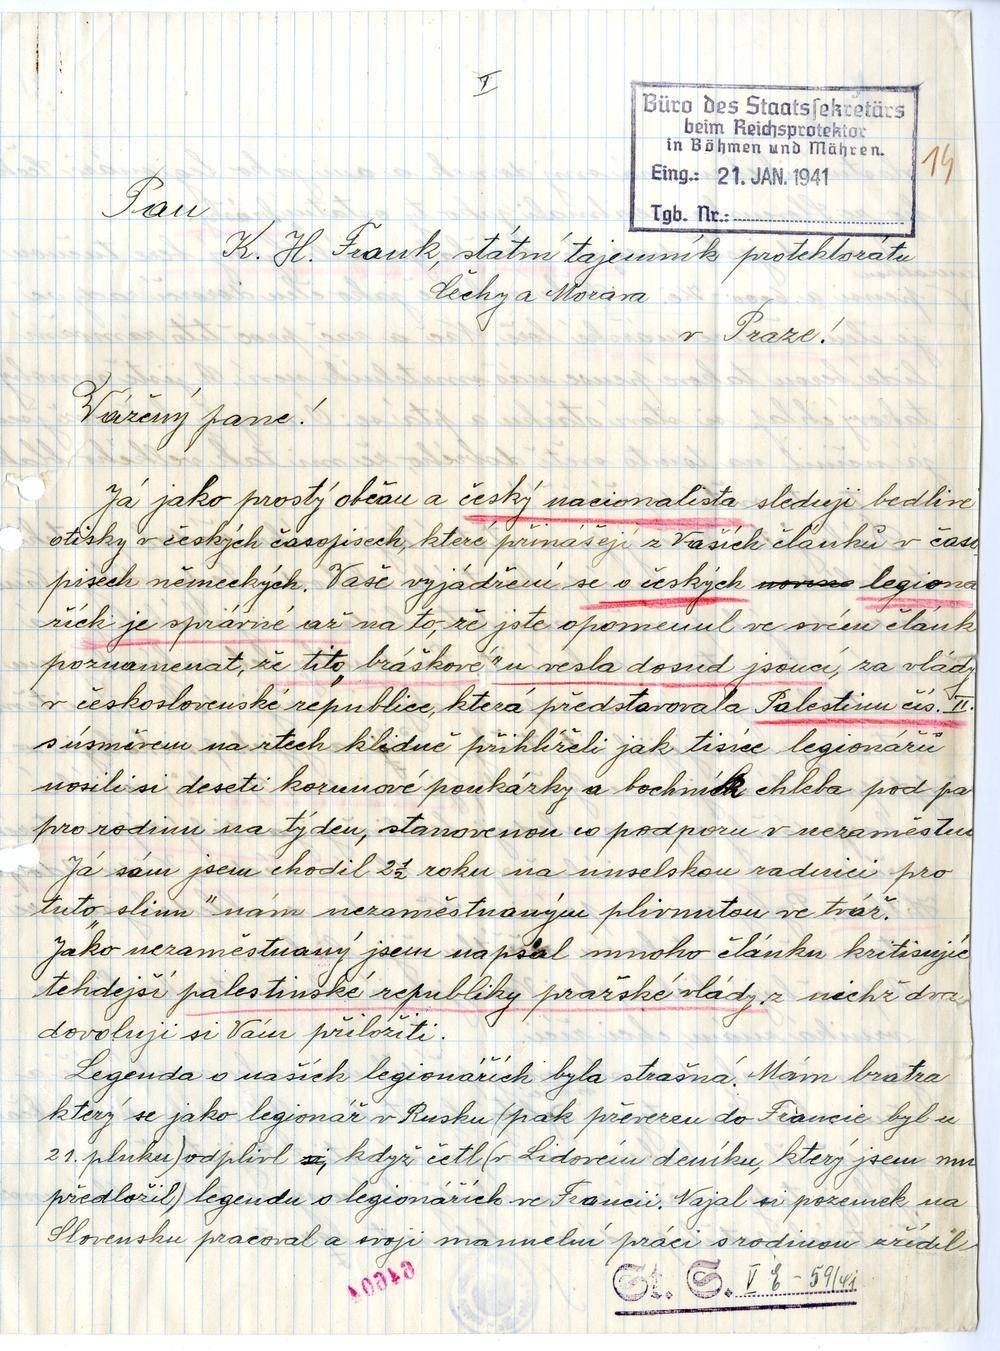 I
Büro des Staatssekretärs
beim Reichsprotektor
in Böhmen und Mähren.
Eing.: 21. JAN. 1941
Tgb. Nr.:
14
Pan
K. H. Frank, státní tajemník protektorátu
Čechy a Morava
v Praze!
Vážený pane!
Já jako prostý občan a český nacionalista sleduji bedlivě
otisky v českých časopisech, které přinášejí z Vašich článků v časo
pisech německých. Vaše vyjádření se o českých legiona
řích je správné až na to, že jste opomenul ve svém článk
poznamenat, že tito „bráškové" u vesla dosud jsoucí, za vlády
v československé republice, která představovala Palestinu čís. II.
s úsměvem na rtech klidně přihlíželi jak tisíce legionářů
nosili si deseti korunové poukázky a bochník chleba pod pa
pro rodinu na týden, stanovenou co podporu v nezaměstn
Já sám jsem chodil 2½ roku na nuselskou radnici pro
tuto „slinu" nám nezaměstnaným plivnutou ve tvář.
Jako nezaměstnaný jsem napsal mnoho článku kritisujíc
tehdejší palestinské republiky pražské vlády z nichž dva
dovoluji si Vám přiložiti.
Legenda o našich legionářích byla strašná. Mám bratra
který se jako legionář v Rusku (pak převezen do Francie byl u
21. pluku) odplivl si, když četl (v Lidovém deníku, který jsem mu
předložil) legendu o legionářích ve Francii. Najal si pozemek na
Slovensku pracoval a svoji manuelní práci s rodinou zřídil
St. S. V E - 59/41